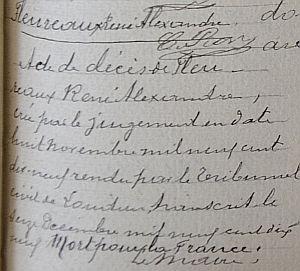 Fleureaux René Alexandre. do
Acte de décès de Fleu-
reaux René Alexandre,
crée par le jugement en date
huit novembre mil neuf cent
dix neuf rendu par le tribunal
civil de Loudun, transcrit le
seize Décembre mil neuf cent dix
neuf Mort pour la France.
Le Maire,